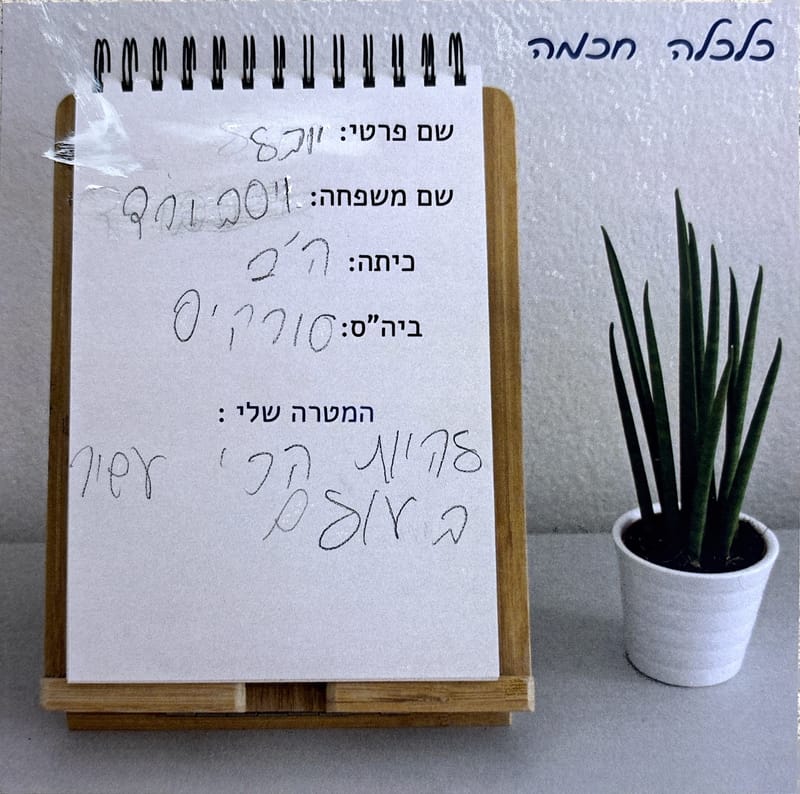 כלכלה חכמה
שם פרטי: יובל
שם משפחה:
כיתה: ה'ב
ביה"ס: סורקיס
המטרה שלי :
להיות הכי עשיר
בעולם